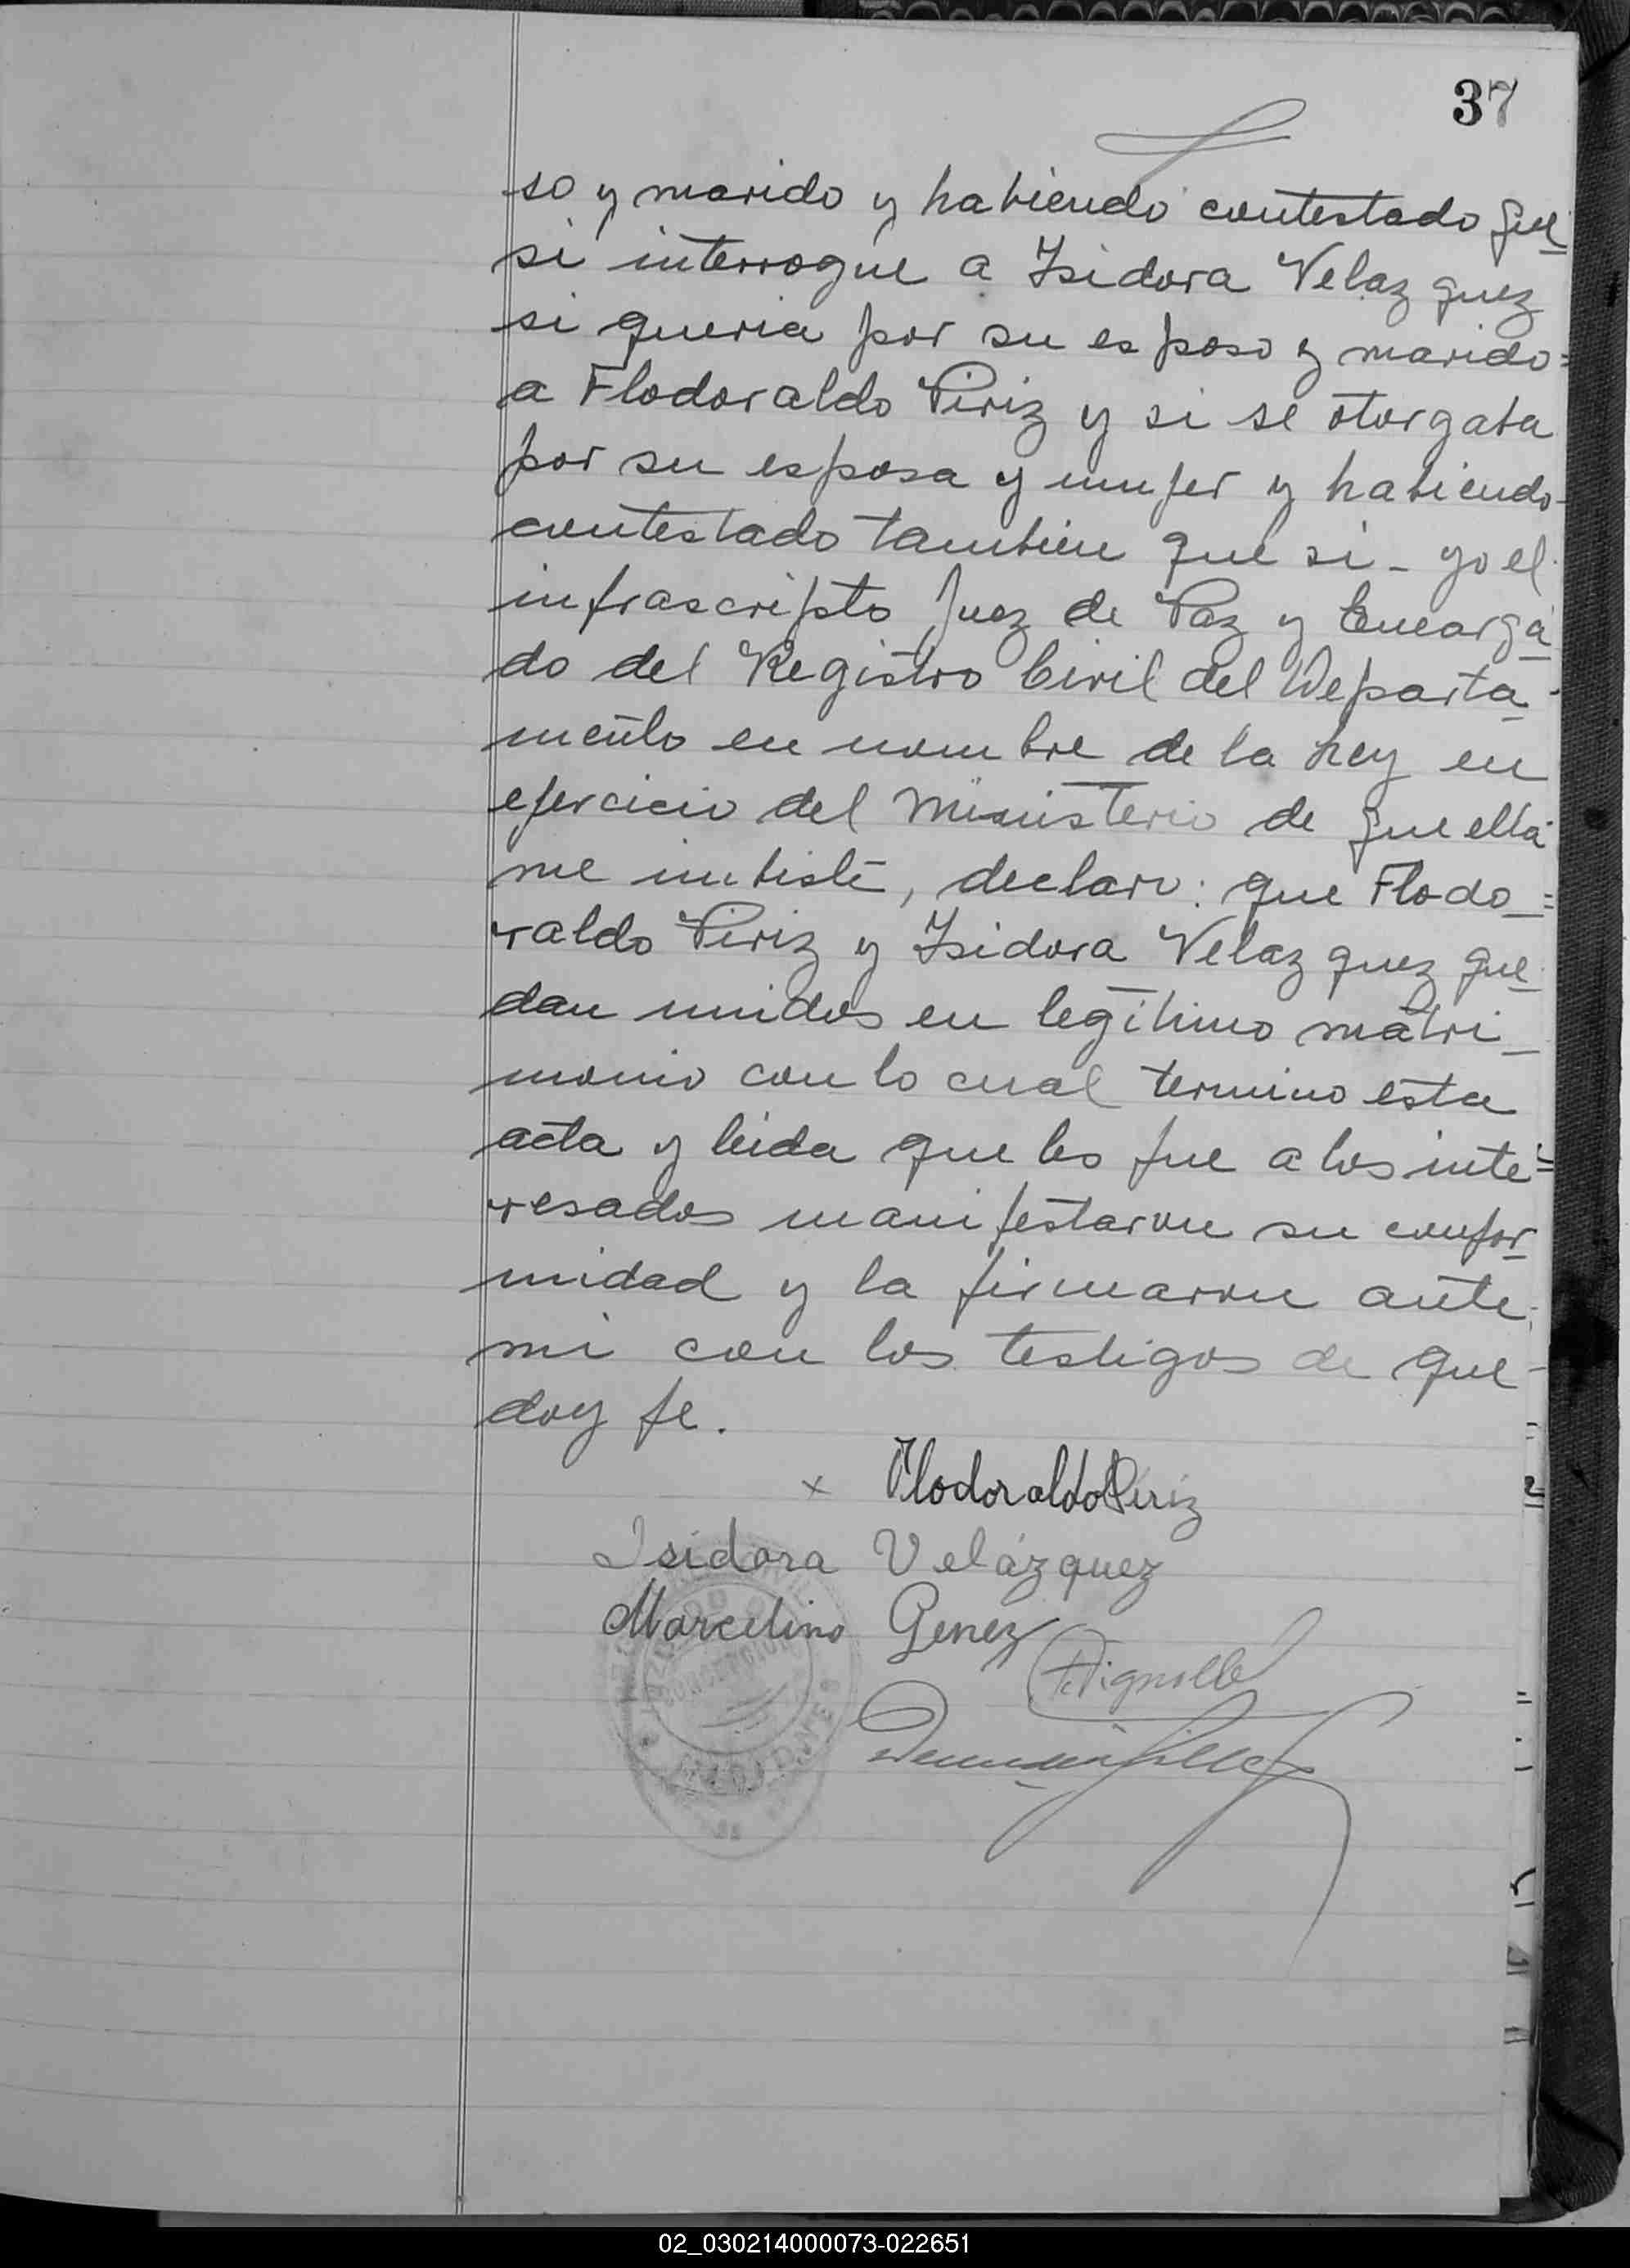 37
so y marido y habiendo contestado que
si interrogue a Isidora Velaz quez
si queria por su esposo y marido=
a Flodoraldo Piriz y si se otorgaba
por su esposa y mujer y habiendo
contestado tambien que si - yo el
infrascripto Juez de Paz y Encarga
do del Registro Civil del Departa-
mento en nombre de la Ley en
ejercicio del Ministerio de que ella
me imbiste, declaro: que Flodo=
raldo Piriz y Isidora Velaz quez que
dan unidos en legitimo matri_
monio con lo cual termino esta
acta y leida que les fue a los inte=
resados manifestaron su confor
midad y la firmaron ante
mi con los testigos de que-
doy fe.
x Flodoraldo Piriz
Isidora Velázquez
Marcelino Genez
CONCEPCION
02_030214000073-022651